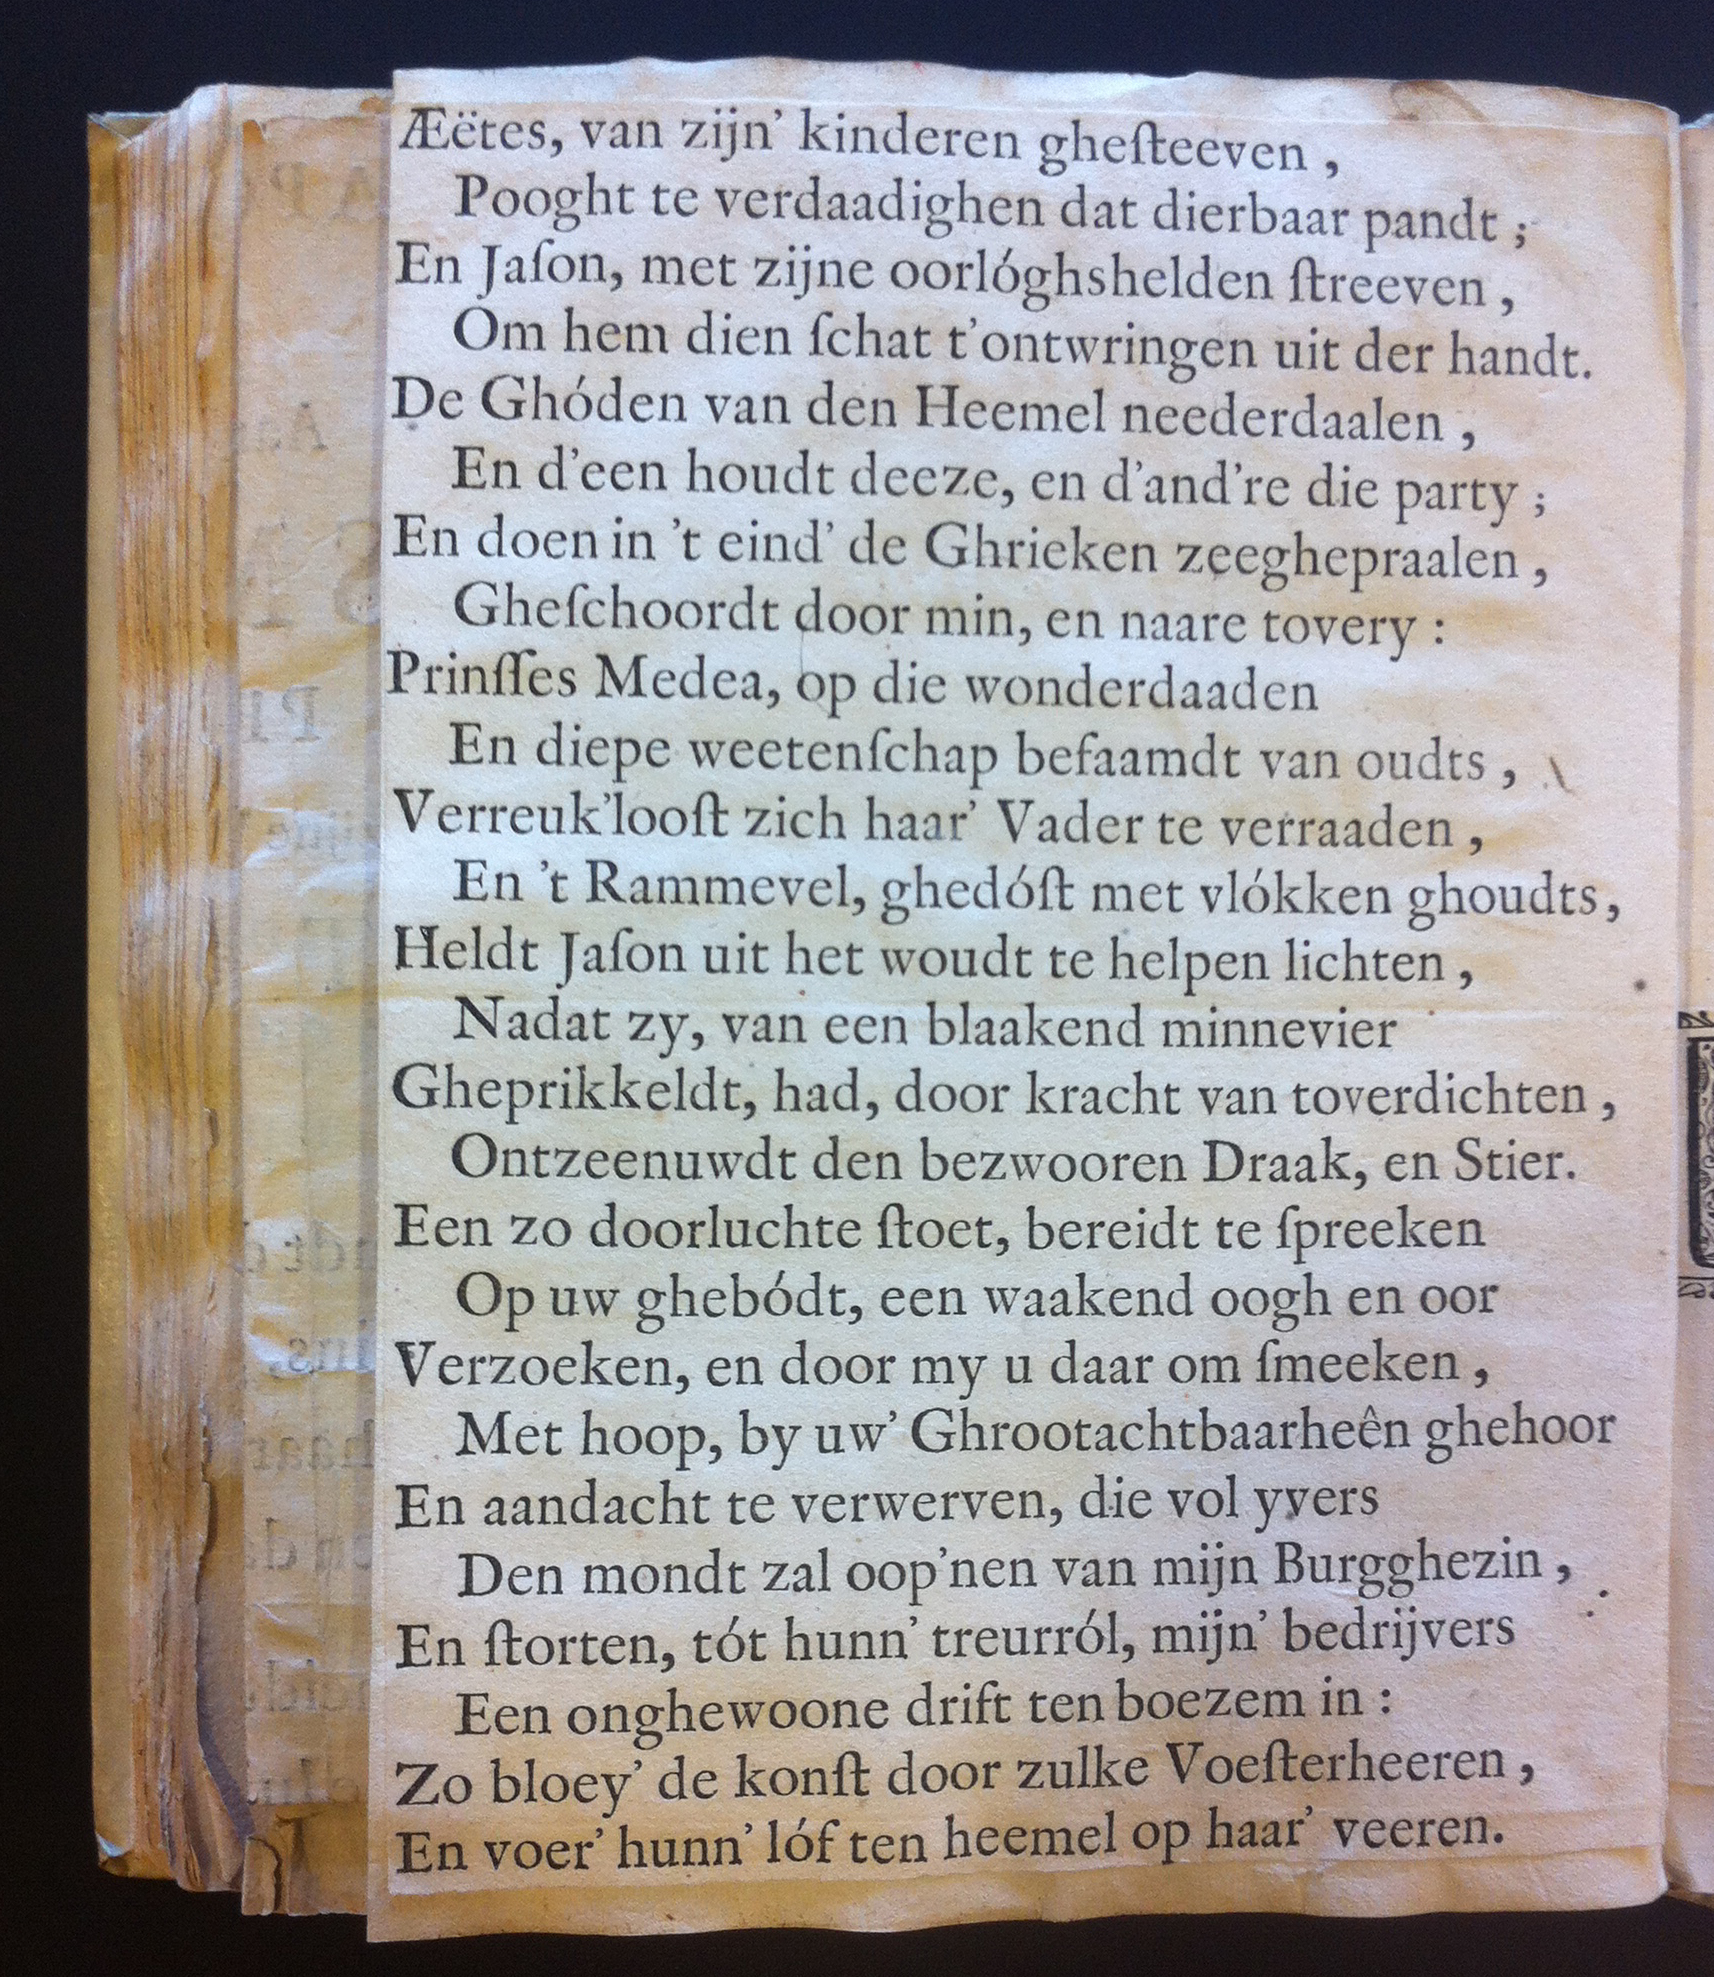 Æëtes, van zijn' kinderen gheſteeven,
Pooght te verdaadighen dat dierbaar pandt;
En Jaſon, met zijne oorlóghshelden ſtreeven,
Om hem dien ſchat t'ontwringen uit der handt.
De Ghóden van den Heemel neederdaalen,
En d'een houdt deeze, en d'and're die party;
En doen in 't eind' de Ghrieken zeeghepraalen,
Gheſchoordt door min, en naare tovery:
Prinſſes Medea, op die wonderdaaden
En diepe weetenſchap befaamdt van oudts,
Verreuk'looſt zich haar' Vader te verraaden,
En 't Rammevel, ghedóſt met vlókken ghoudts,
Heldt Jaſon uit het woudt te helpen lichten,
Nadat zy, van een blaakend minnevier
Gheprikkeldt, had, door kracht van toverdichten,
Ontzeenuwdt den bezwooren Draak, en Stier.
Een zo doorluchte ſtoet, bereidt te ſpreeken
Op uw ghebódt, een waakend oogh en oor
Verzoeken, en door my u daar om ſmeeken,
Met hoop, by uw' Ghrootachtbaarheên ghehoor
En aandacht te verwerven, die vol yvers
Den mondt zal oop'nen van mijn Burgghezin,
En ſtorten, tót hunn' treurról, mijn' bedrijvers
Een onghewoone drift ten boezem in:
Zo bloey' de konſt door zulke Voeſterheeren,
En voer' hunn' lóf ten heemel op haar' veeren.